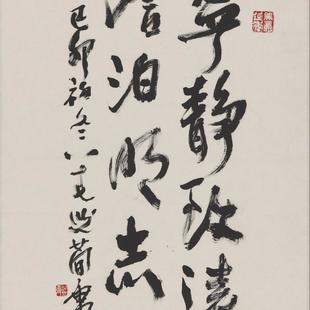 寧靜致遠
澹泊明志
己卯初冬八